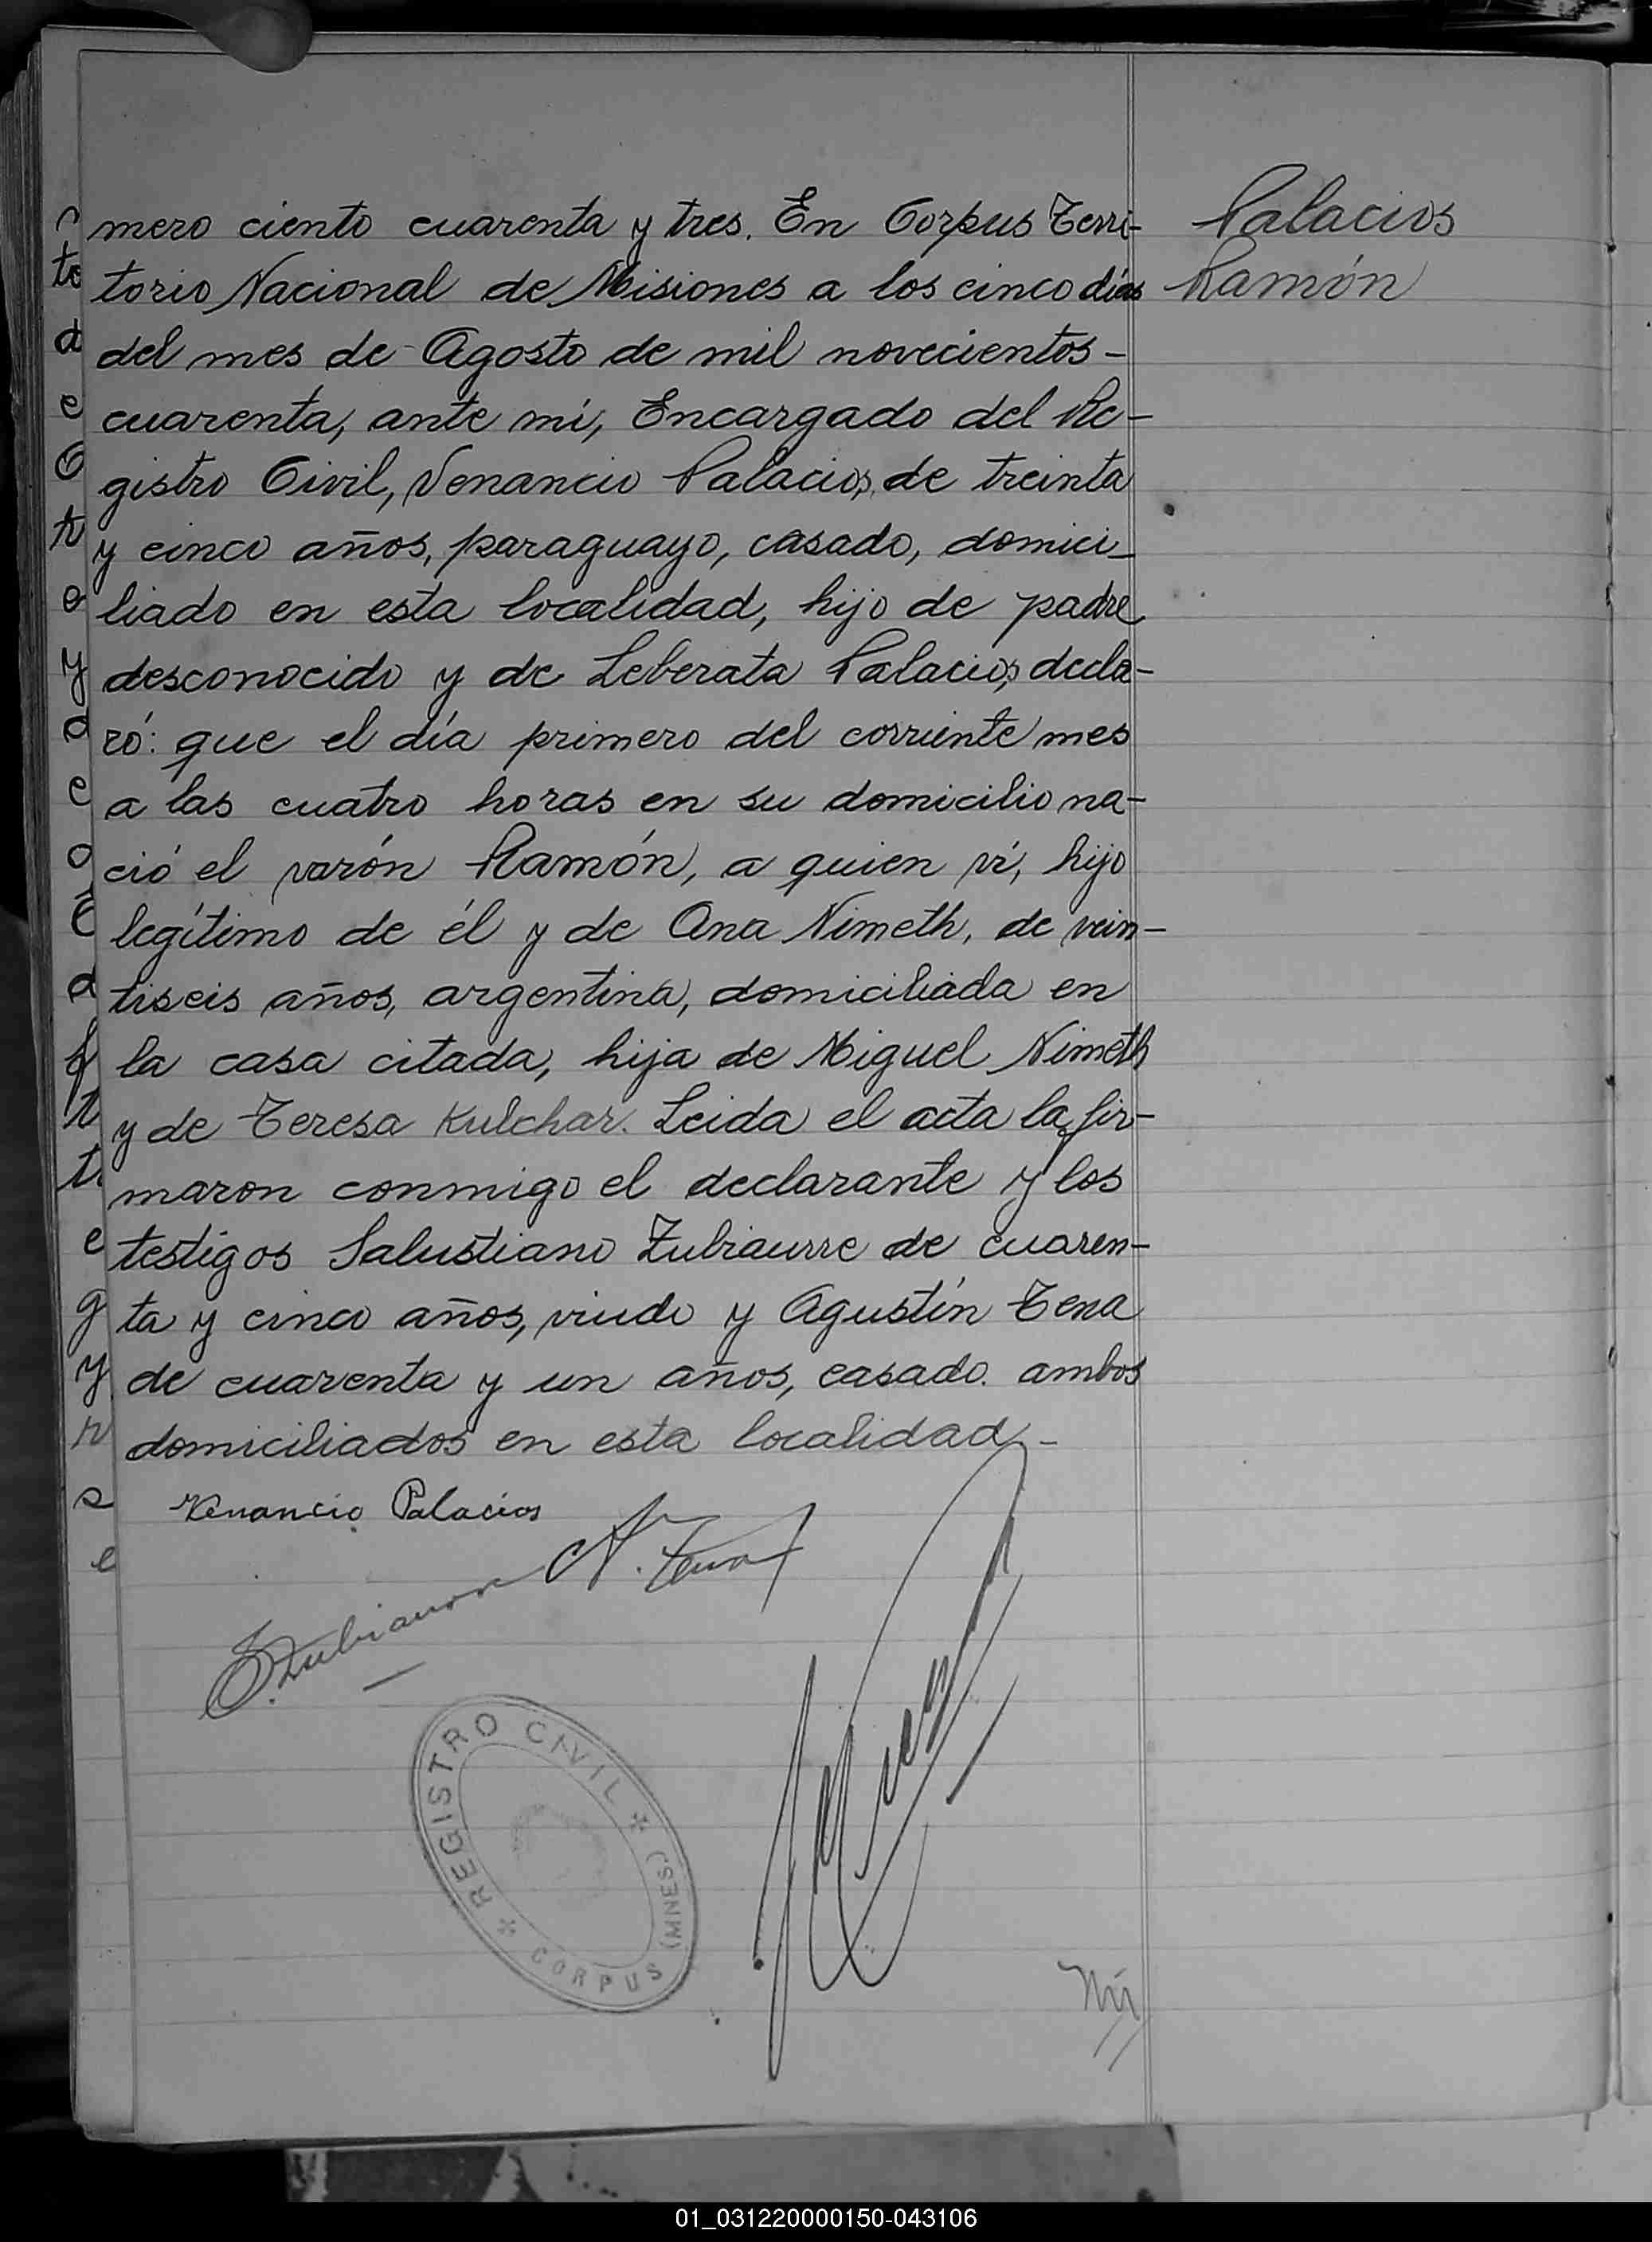 mero ciento cuarenta y tres. En Corpus Terri-
torio Nacional de Misiones a los cinco días
del mes de Agosto de mil novecientos-
cuarenta, ante mí, Encargado del Re-
gistro Civil, Venancio Palacios, de treinta
y cinco años, paraguayo, casado, domici-
liado en esta localidad, hijo de padre
desconocido y de Leberata Palacios, decla-
ró: que el día primero del corriente mes
a las cuatro horas en su domicilio na-
ció el varón Ramón, a quien ví, hijo
legítimo de él y de Ana Nimeth, de vein-
tiseis años, argentina, domiciliada en
la casa citada, hija de Miguel Nimeth
y de Teresa Kulchar. Leida el acta la fir-
maron conmigo el declarante y los
testigos Salustiano Zubiaurre de cuaren-
ta y cinco años, viudo y Agustín Tena
de cuarenta y un años, casado. ambos
domiciliados en esta localidad-
Palacios
Ramón
Venancio Palacios
A. Tena
S. Zubiaurre
* REGISTRO CIVIL *
CORPUS (MNES.)
01_031220000150-043106